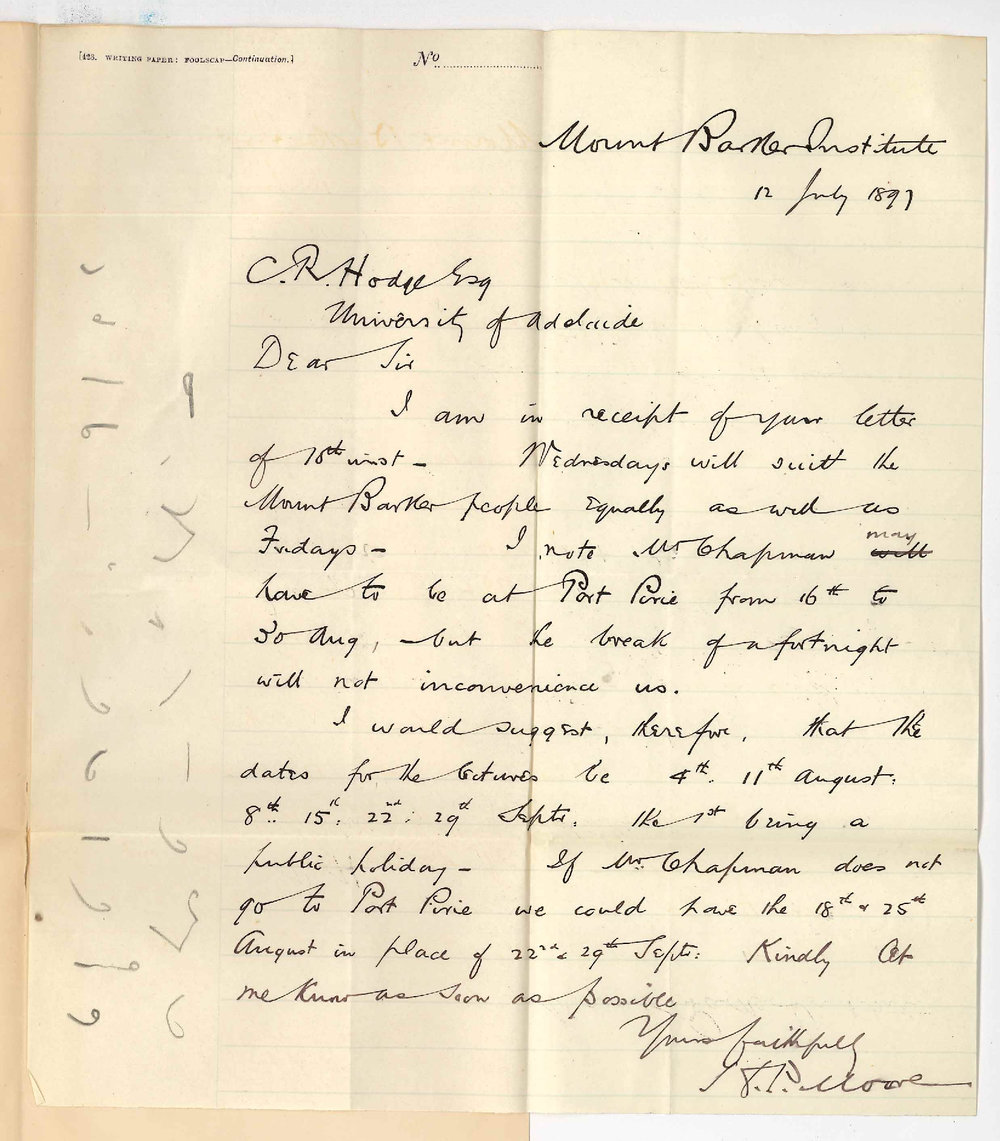 [428. WRITING PAPER: FOOLSCAP—Continuation.]
No
Mount Barker Institute
12 July 1897
C. R. Hodge Esq
University of Adelaide
Dear Sir
I am in receipt of your letter
of 10th inst - Wednesdays will suit the
Mount Barker people equally as well as
Fridays - I note Mr Chapman will may
have to be at Port Pirie from 16th to
30 Aug, - but the break of a fortnight
will not inconvenience us.
I would suggest, therefore, that the
dates for the lectures be 4th. 11th August:
8th: 15th: 22nd: 29th Septr: the 1st being a
public holiday - If Mr Chapman does not
go to Port Pirie we could have the 18th & 25th
August in place of 22nd & 29th Septr: Kindly let
me know as soon as possible
Yours faithfully
P. Moore